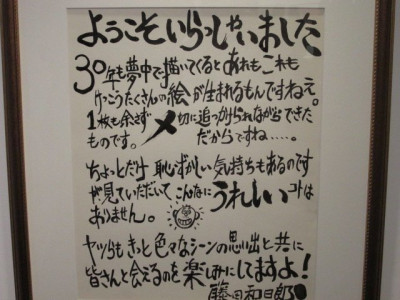 ようこそいらっしゃいました
30年も夢中で描いてくると あれもこれも
けっこうたくさんの絵が生まれるもんですねえ。
1枚も余さず〆切に追っかけられながらできた
ものです。だからですね……。
ちょっとだけ 恥ずかしい気持ちもあるのです
が見ていただいて こんなにうれしいコトは
ありません。
ヤツらも きっと色々なシーンの思い出と共に
皆さんと会えるのを楽しみにしてますよ!
藤田和日郎